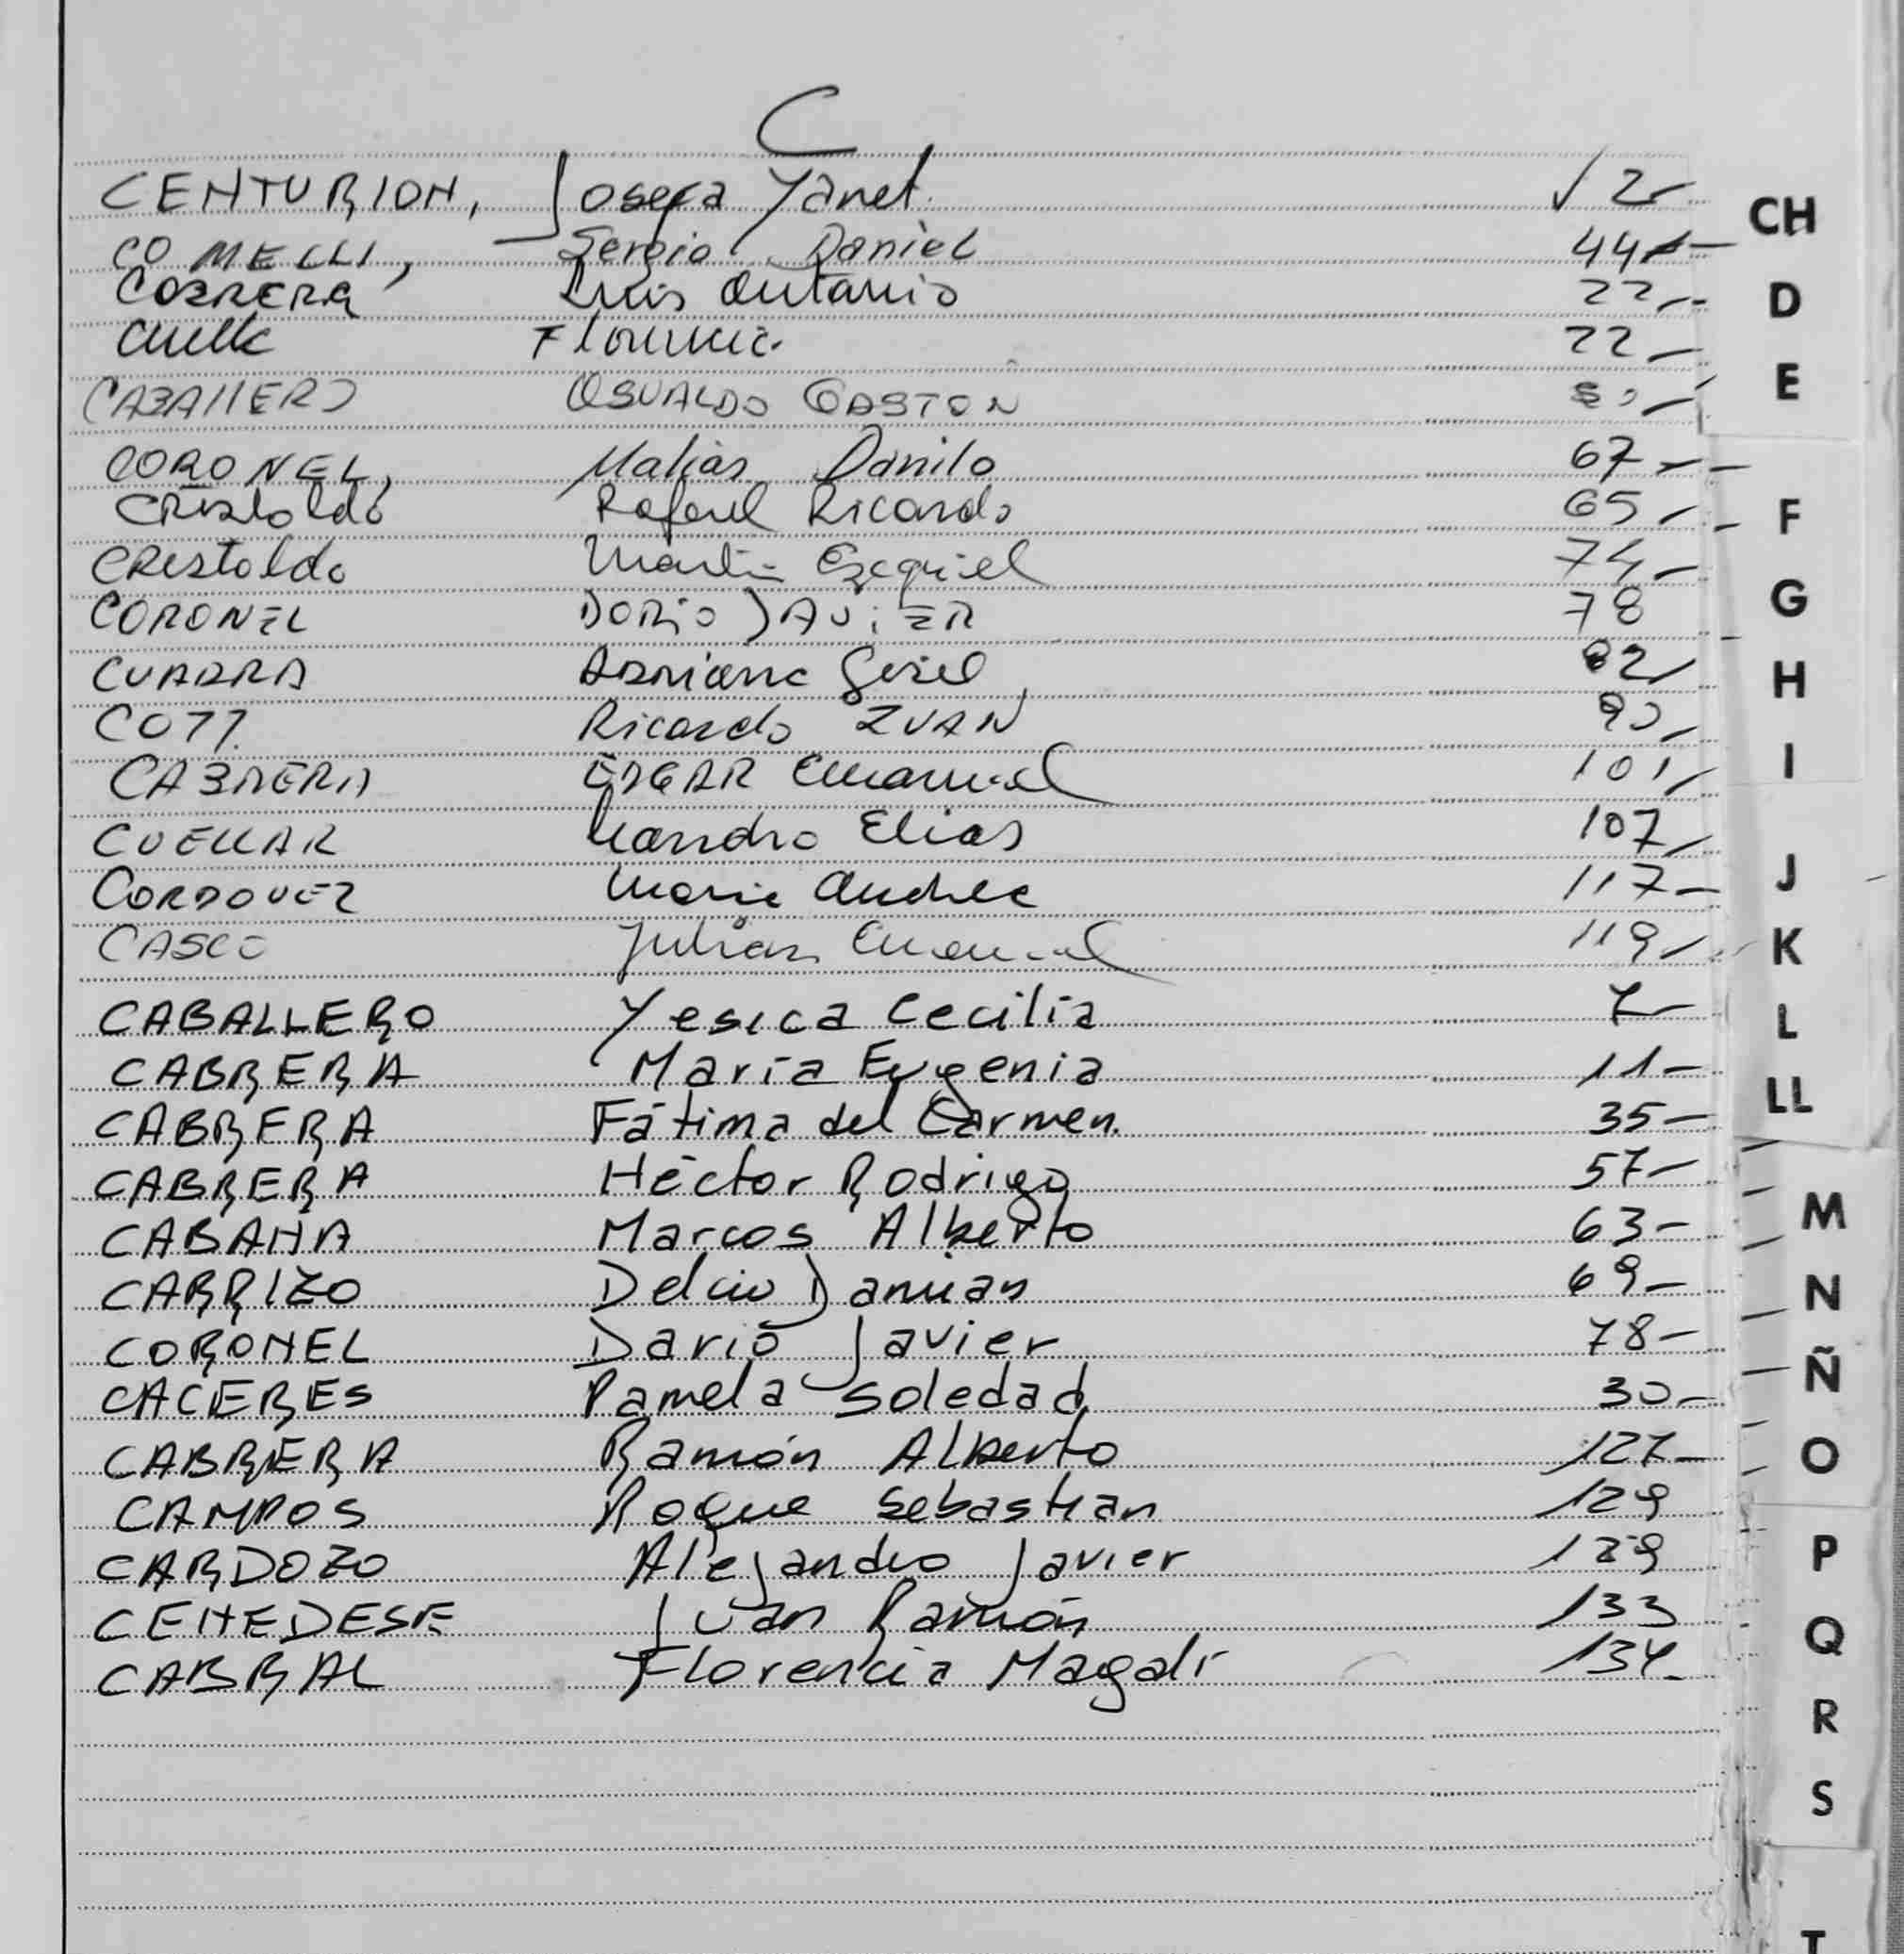 C
CENTURION, Josefa Yanet. √ 2-
COMELLI, Sergio Daniel 44-
CABRERA Luis Antonio 22-
Cuella Florencia 22-
CABALLERO OSVALDO GASTON
CORONEL, Matías Danilo 67-
CRistoldo Rafael Ricardo 65-
CRistoldo Martin Ezequiel 74-
CORONEL DARIO JAViER 78
CUADRA ADRIANA Gisel 82-
COTI Ricardo IVAN 90-
CABRERA EDGAR Emanuel 101-
CUELLAR Leandro Elias 107-
CORDOVEZ Maria Andrea 117-
CASCO Julián Emanuel 119-
CABALLERO Yesica Cecilia 7-
CABRERA María Eugenia 11-
CABRERA Fátima del Carmen. 35-
CABRERA Héctor Rodrigo 57-
CABANA Marcos Alberto 63-
CARRIZO Delcio Damian 69-
CORONEL Darío Javier 78-
CACERES Pamela Soledad 30-
CABRERA Ramón Alberto 127-
CAMPOS Roque Sebastian 129
CARDOZO Alejandro Javier 129
CENEDESE Juan Ramón 133
CABRAL Florencia Magalí 134-
CH
D
E
F
G
H
I
J
K
L
LL
M
N
Ñ
O
P
Q
R
S
T